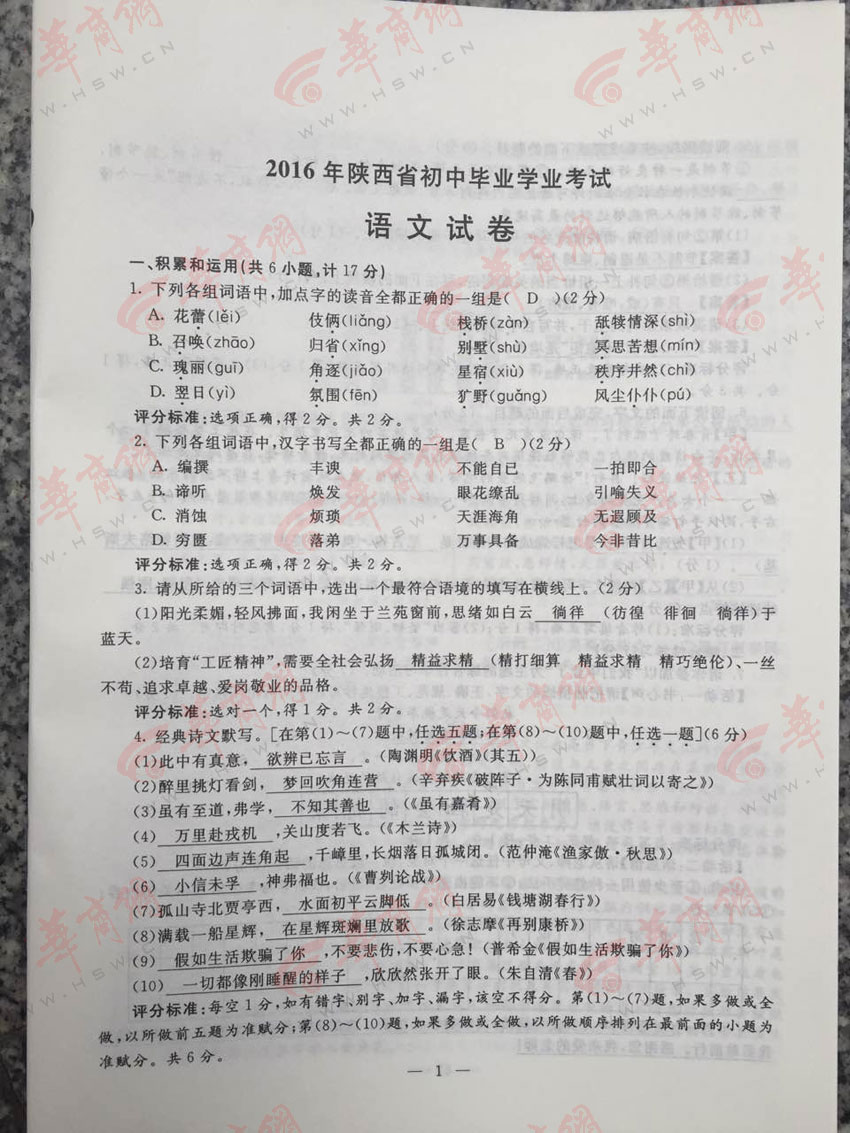 华商网
WWW.HSW.CN
2016年陕西省初中毕业学业考试
语文试卷
一、积累和运用(共6小题,计17分)
1. 下列各组词语中,加点字的读音全都正确的一组是( D )(2分)
A. 花蕾(lěi) 伎俩(liǎng) 栈桥(zàn) 舐犊情深(shì)
B. 召唤(zhāo) 归省(xǐng) 别墅(shù) 冥思苦想(mín)
C. 瑰丽(guī) 角逐(jiǎo) 星宿(xiù) 秩序井然(chì)
D. 翌日(yì) 氛围(fēn) 犷野(guǎng) 风尘仆仆(pú)
评分标准:选项正确,得2分。共2分。
2. 下列各组词语中,汉字书写全都正确的一组是( B )(2分)
A. 编撰 丰谀 不能自已 一拍即合
B. 谛听 焕发 眼花缭乱 引喻失义
C. 消蚀 烦琐 天涯海角 无遐顾及
D. 穷匮 落弟 万事具备 今非昔比
评分标准:选项正确,得2分。共2分。
3. 请从所给的三个词语中,选出一个最符合语境的填写在横线上。(2分)
(1)阳光柔媚,轻风拂面,我闲坐于兰苑窗前,思绪如白云 徜徉 (彷徨 徘徊 徜徉)于
蓝天。
(2)培育“工匠精神”,需要全社会弘扬 精益求精 (精打细算 精益求精 精巧绝伦)、一丝
不苟、追求卓越、爱岗敬业的品格。
评分标准:选对一个,得1分。共2分。
4. 经典诗文默写。[在第(1)~(7)题中,任选五题;在第(8)~(10)题中,任选一题](6分)
(1)此中有真意, 欲辨已忘言 。(陶渊明《饮酒》(其五))
(2)醉里挑灯看剑, 梦回吹角连营 。(辛弃疾《破阵子·为陈同甫赋壮词以寄之》)
(3)虽有至道,弗学, 不知其善也 。(《虽有嘉肴》)
(4) 万里赴戎机 ,关山度若飞。(《木兰诗》)
(5) 四面边声连角起 ,千嶂里,长烟落日孤城闭。(范仲淹《渔家傲·秋思》)
(6) 小信未孚 ,神弗福也。(《曹刿论战》)
(7)孤山寺北贾亭西, 水面初平云脚低 。(白居易《钱塘湖春行》)
(8)满载一船星辉, 在星辉斑斓里放歌 。(徐志摩《再别康桥》)
(9) 假如生活欺骗了你 ,不要悲伤,不要心急!(普希金《假如生活欺骗了你》)
(10) 一切都像刚睡醒的样子 ,欣欣然张开了眼。(朱自清《春》)
评分标准:每空1分,如有错字、别字、加字、漏字,该空不得分。第(1)~(7)题,如果多做或全
做,以所做前五题为准赋分;第(8)~(10)题,如果多做或全做,以所做顺序排列在最前面的小题为
准赋分。共6分。
— 1 —